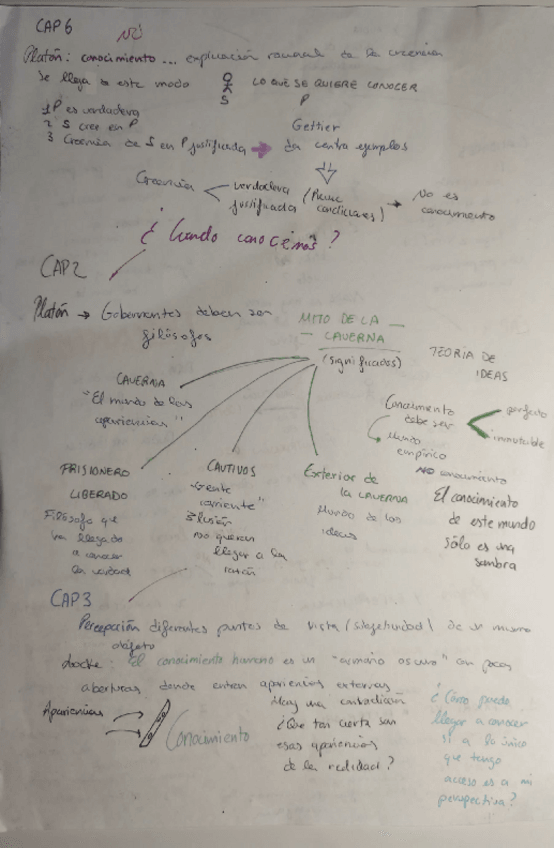 CAP 6
Platón: conocimiento ... explicación racional de la creencia
Se llega de este modo
LO QUE SE QUIERE CONOCER
S P
1 P es verdadera
2 S cree en P
3 Creencia de S en P justificada
Gettier
da contra ejemplos
Creencia
verdadera
justificada
(Reune
condiciones)
No es
conocimiento
¿Cuando conocemos?
CAP2
Platón → Gobernantes deben ser
filósofos
MITO DE LA
CAVERNA
(significados)
TEORIA DE
IDEAS
CAVERNA
"El mundo de las
apariencias"
Conocimiento
debe ser
perfecto
inmutable
Mundo
empírico
NO conocimiento
El conocimiento
de este mundo
sólo es una
sombra
PRISIONERO
LIBERADO
Filósofo que
ha llegado
a conocer
la verdad
CAUTIVOS
"Gente
corriente"
Ilusión
no quieren
llegar a la
razón
Exterior de
la CAVERNA
Mundo de las
ideas
CAP3
Percepción diferentes puntos de vista (subjetividad) de un mismo
objeto
Locke: El conocimiento humano es un "armario oscuro" con pocas
aberturas donde entran apariencias externas
Apariencias
Conocimiento
Hay una contradicción
¿Que tan cierta son
esas apariencias
de la realidad?
¿Cómo puedo
llegar a conocer
si a lo único
que tengo
acceso es a mi
perspectiva?